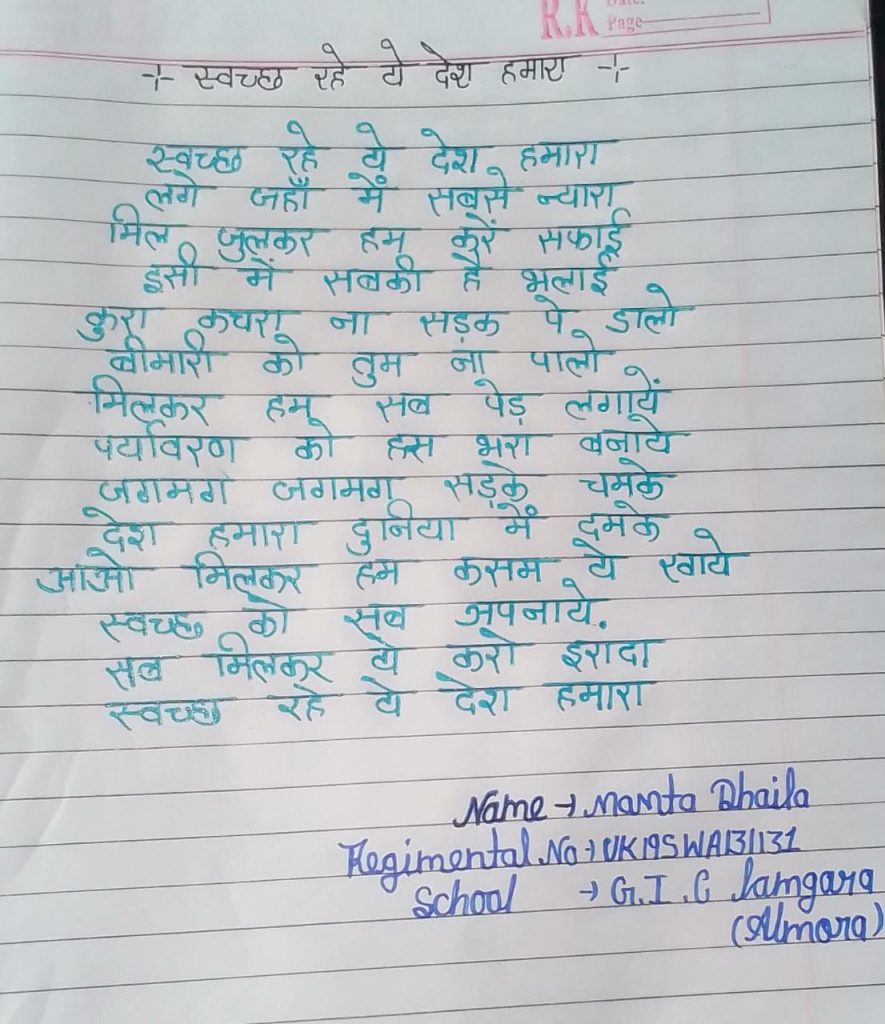 R.K Date:
Page
स्वच्छ रहे ये देश हमारा
स्वच्छ रहे ये देश हमारा
लगे जहाँ में सबसे न्यारा
मिल जुलकर हम करें सफाई
इसी में सबकी है भलाई
कुरा कचरा ना सड़क पे डालो
बीमारी को तुम ना पालो
मिलकर हम सब पेड़ लगायें
पर्यावरण को हरा भरा बनाये
जगमग जगमग सड़के चमके
देश हमारा दुनिया में दमके
आओ मिलकर हम कसम ये खाये
स्वच्छ को सब अपनाये.
सब मिलकर ये करो इरादा
स्वच्छ रहे ये देश हमारा
Name → Mamta Dhaila
Regimental.No → UK19SWA131131
School → G.I.C Jamgara
(Almora)